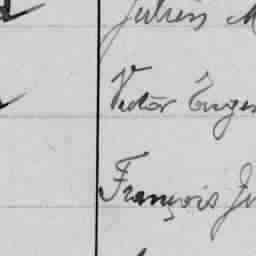 Julien M
Victor Eugen
François Ju